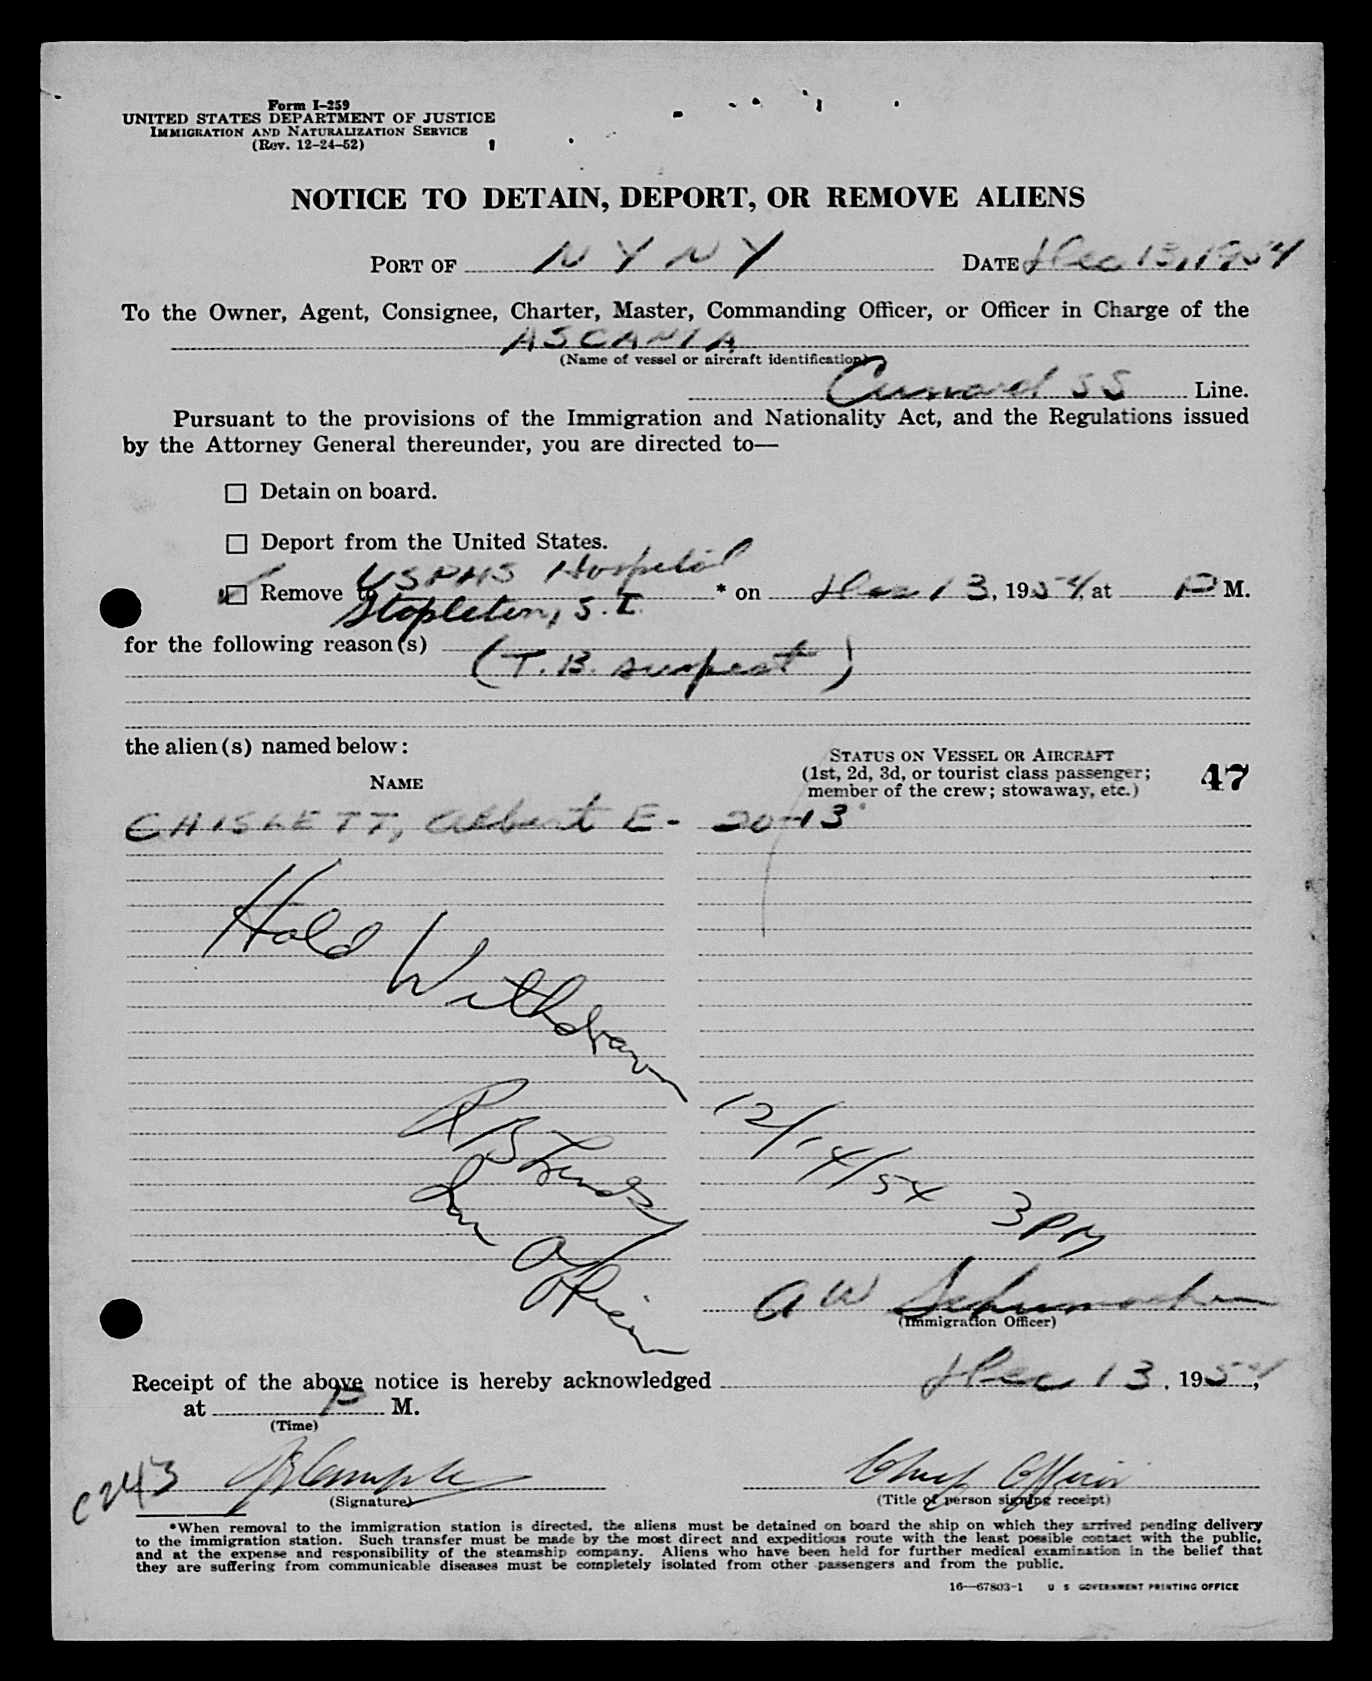 Form I-259
UNITED STATES DEPARTMENT OF JUSTICE
IMMIGRATION AND NATURALIZATION SERVICE
(Rev. 12-24-52)
NOTICE TO DETAIN, DEPORT, OR REMOVE ALIENS
PORT OF N Y N Y DATE Dec 13, 1954
To the Owner, Agent, Consignee, Charter, Master, Commanding Officer, or Officer in Charge of the
ASCANIA
(Name of vessel or aircraft identification)
Cunard SS Line.
Pursuant to the provisions of the Immigration and Nationality Act, and the Regulations issued
by the Attorney General thereunder, you are directed to—
☐ Detain on board.
☐ Deport from the United States.
USPHS Hospital
Remove to * on Dec 13, 1954, at P M.
Stapleton, S. I.
for the following reason(s)
(T. B. suspect)
the alien(s) named below:
STATUS ON VESSEL OR AIRCRAFT
(1st, 2d, 3d, or tourist class passenger;
member of the crew; stowaway, etc.)
47
NAME
CHISLETT, Albert E - 20-13
Hold Withdrawn
12/14/54 3 PM
Officer
A W Schumacher
(Immigration Officer)
Receipt of the above notice is hereby acknowledged Dec 13, 1954,
at P M.
(Time)
C243
Chief Officer
(Signature) (Title of person signing receipt)
*When removal to the immigration station is directed, the aliens must be detained on board the ship on which they arrived pending delivery
to the immigration station. Such transfer must be made by the most direct and expeditious route with the least possible contact with the public,
and at the expense and responsibility of the steamship company. Aliens who have been held for further medical examination in the belief that
they are suffering from communicable diseases must be completely isolated from other passengers and from the public.
16—67803-1 U S GOVERNMENT PRINTING OFFICE